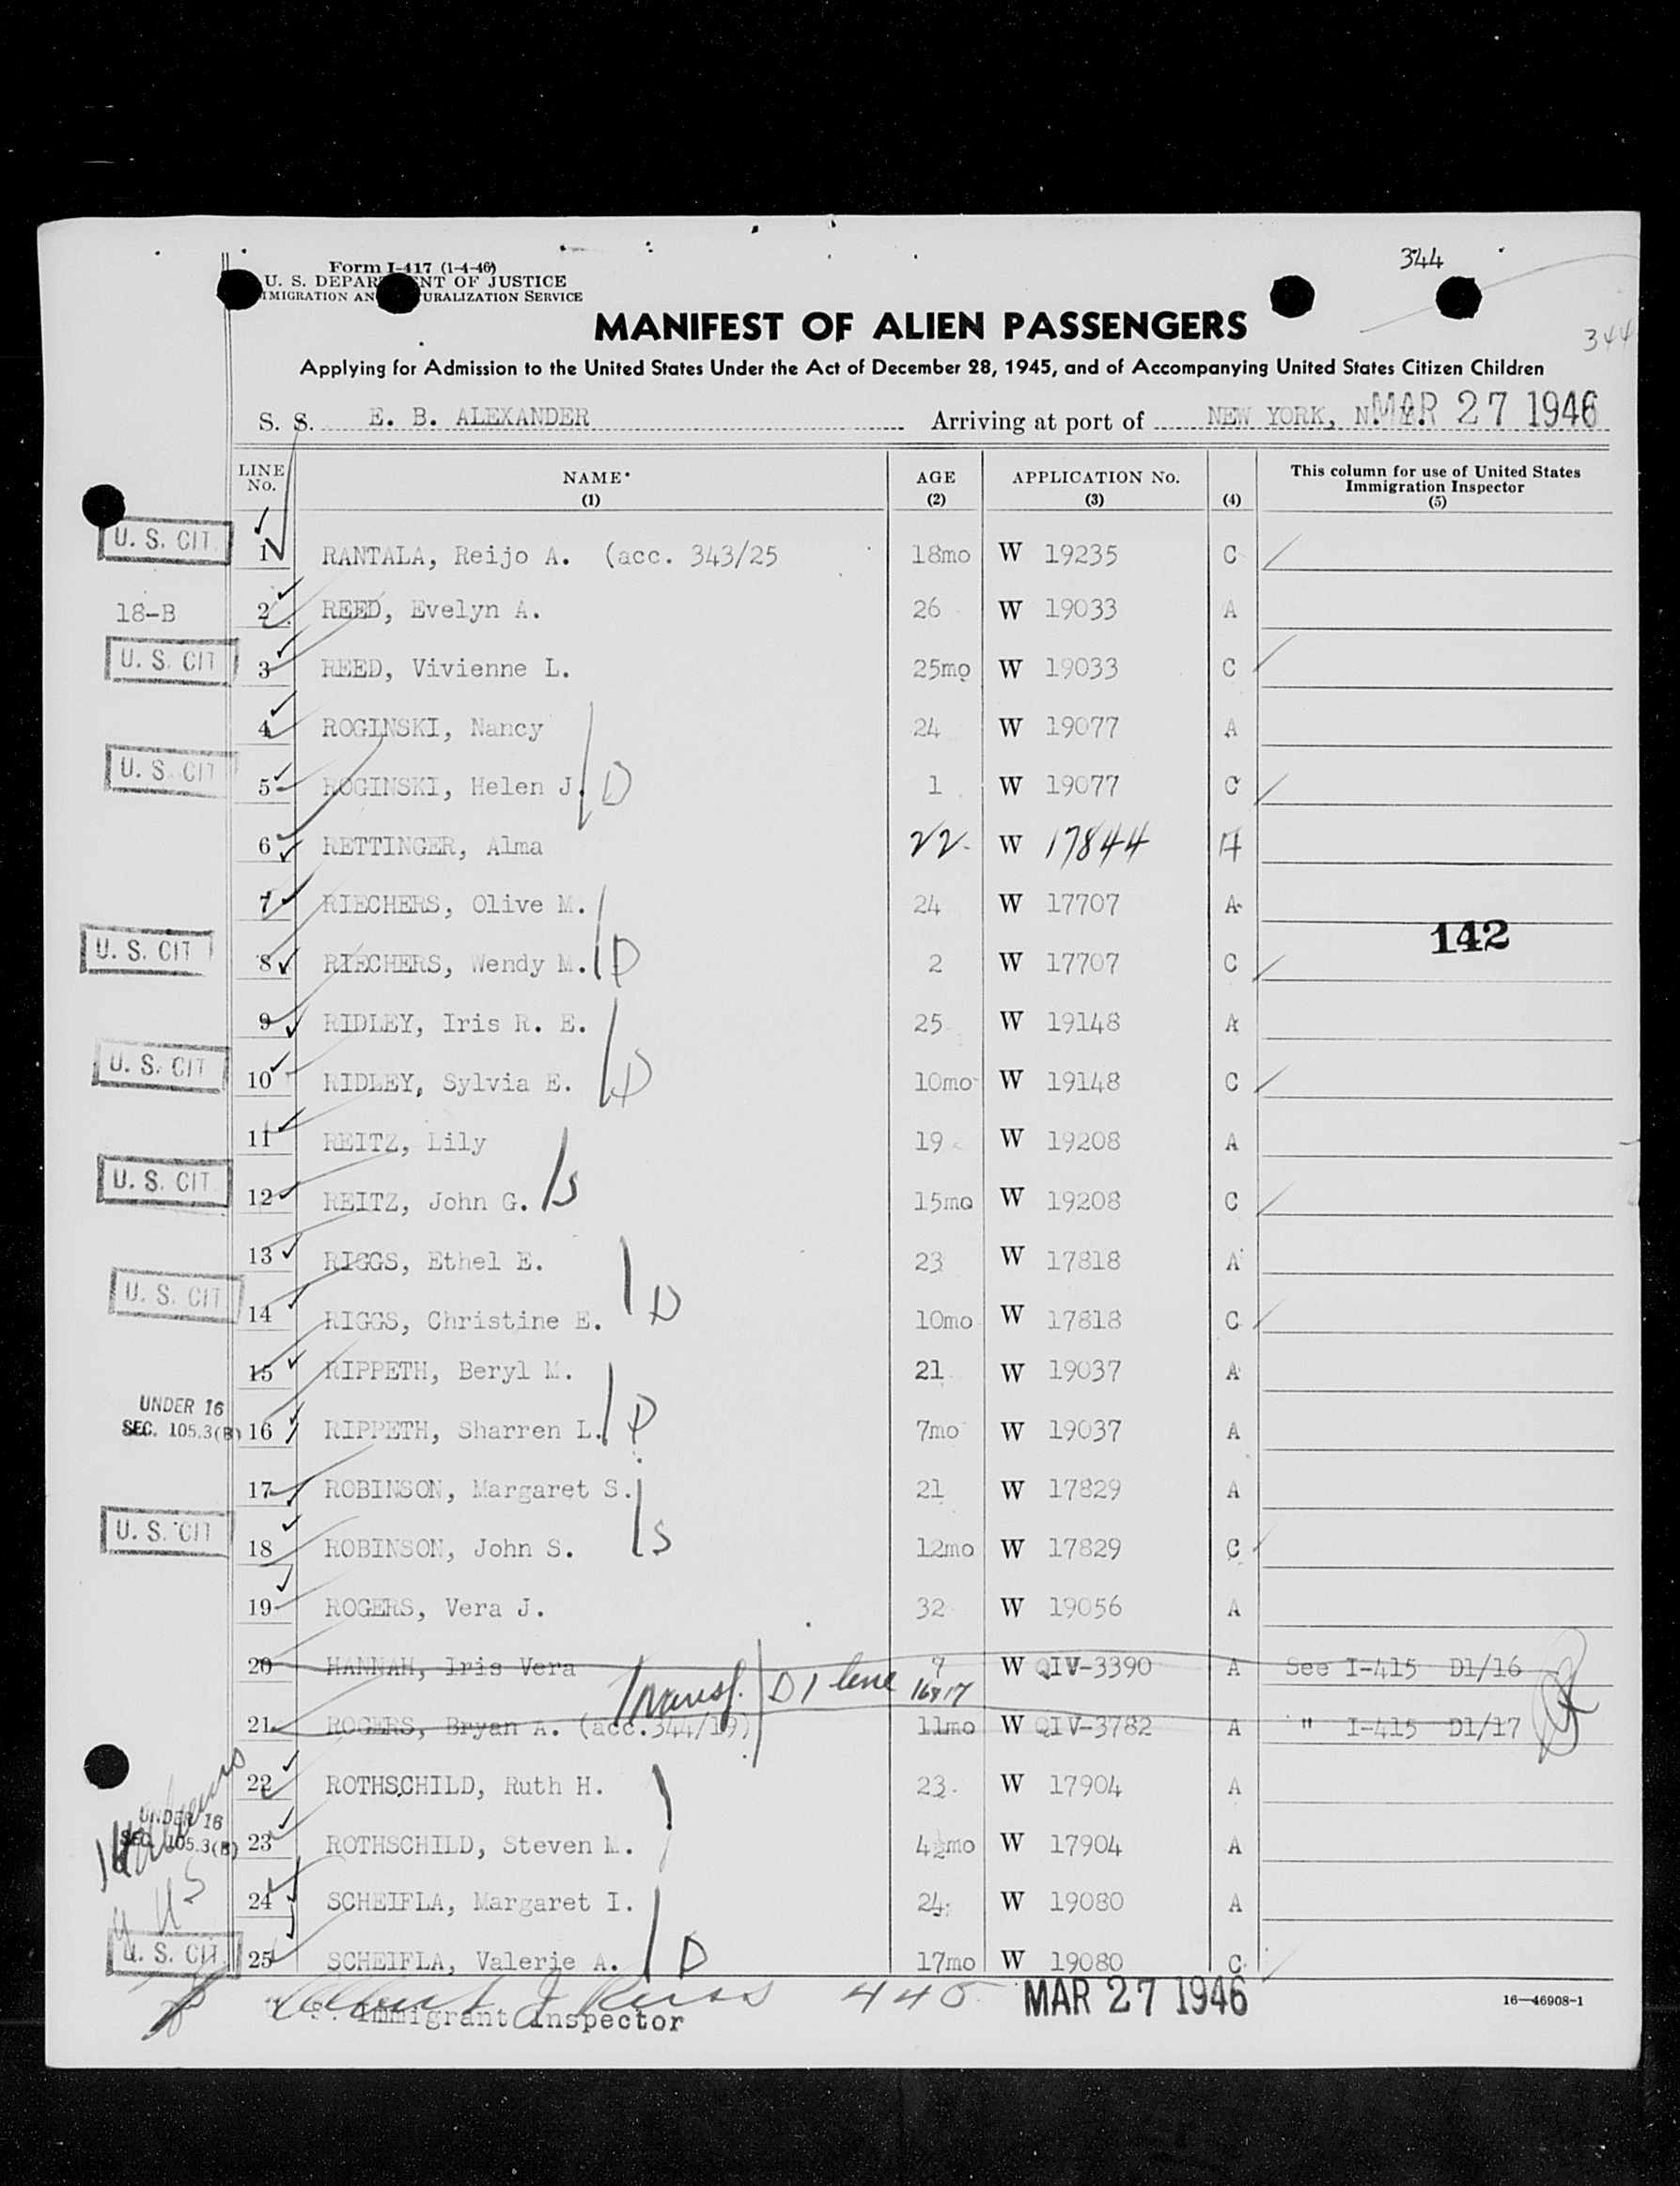 344
Form I-417 (1-4-46)
U. S. DEPAR NT OF JUSTICE
MIGRATION AN URALIZATION SERVICE
MANIFEST OF ALIEN PASSENGERS
344
Applying for Admission to the United States Under the Act of December 28, 1945, and of Accompanying United States Citizen Children
S. S. E. B. ALEXANDER Arriving at port of NEW YORK, N.Y. MAR 27 1946
LINE No. NAME* (1) AGE (2) APPLICATION No. (3) (4) This column for use of United States Immigration Inspector (5)
U. S. CIT 1 RANTALA, Reijo A. (acc. 343/25 18mo W 19235 C
18-B 2 REED, Evelyn A. 26 W 19033 A
U. S. CIT 3 REED, Vivienne L. 25mo W 19033 C
4 ROGINSKI, Nancy 24 W 19077 A
U. S. CIT 5 ROGINSKI, Helen J. D 1 W 19077 C
6 RETTINGER, Alma 22 W 17844 A
7 RIECHERS, Olive M. 24 W 17707 A
142
U. S. CIT 8 RIECHERS, Wendy M. D 2 W 17707 C
9 RIDLEY, Iris R. E. 25 W 19148 A
U. S. CIT 10 RIDLEY, Sylvia E. D 10mo W 19148 C
11 REITZ, Lily 19 W 19208 A
U. S. CIT 12 REITZ, John G. S 15mo W 19208 C
13 RIGGS, Ethel E. 23 W 17818 A
U. S. CIT 14 RIGGS, Christine E. D 10mo W 17818 C
15 RIPPETH, Beryl M. 21 W 19037 A
UNDER 16
SEC. 105.3(B) 16 RIPPETH, Sharren L. D 7mo W 19037 A
17 ROBINSON, Margaret S. 21 W 17829 A
U. S. CIT 18 ROBINSON, John S. S 12mo W 17829 C
19 ROGERS, Vera J. 32 W 19056 A
20 HANNAH, Iris Vera 7 W QIV-3390 A See I-415 D1/16
Transf. D1 line 16&17
21 ROGERS, Bryan A. (acc.344/19) 11mo W QIV-3782 A " I-415 D1/17
22 ROTHSCHILD, Ruth H. 23 W 17904 A
UNDER 16
SEC. 105.3(B) 23 ROTHSCHILD, Steven M. 4½mo W 17904 A
24 SCHEIFLA, Margaret I. 24 W 19080 A
U S
U. S. CIT 25 SCHEIFLA, Valerie A. D 17mo W 19080 C
445 MAR 27 1946 16—46908-1
Immigrant Inspector